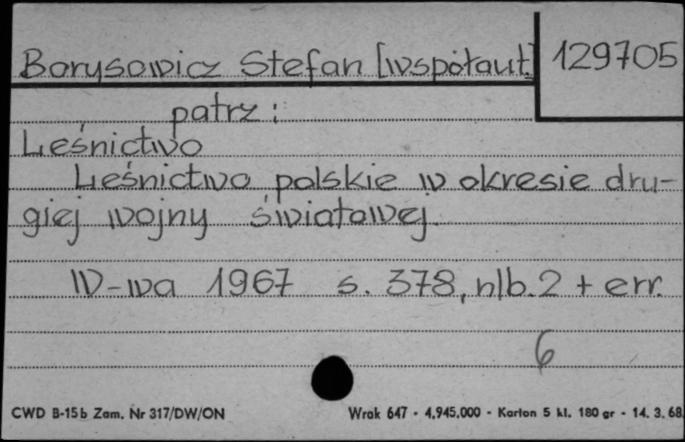 Borysowicz Stefan [współaut.] 129705
patrz:
Leśnictwo
Leśnictwo polskie w okresie dru-
giej wojny światowej.
W-wa 1967 s. 378, nlb. 2 + err.
6
CWD B-15b Zam. Nr 317/DW/ON Wrak 647 - 4,945.000 - Karton 5 kl. 180 gr - 14. 3. 68.